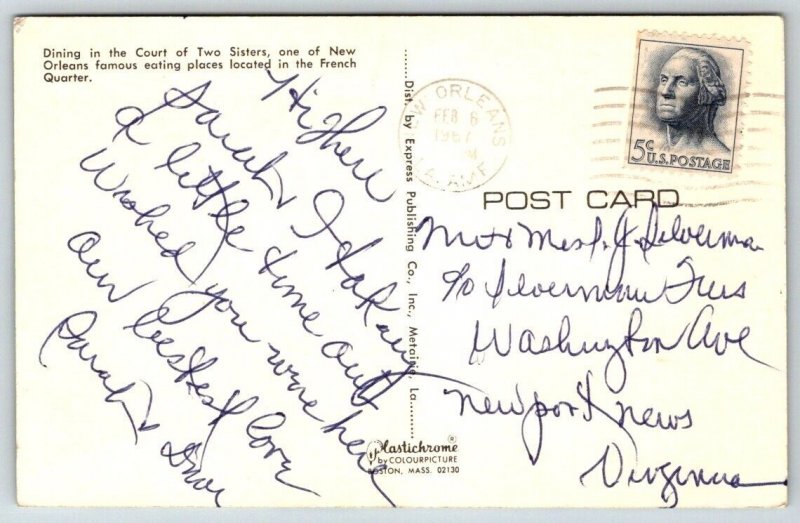 Dining in the Court of Two Sisters, one of New
Orleans famous eating places located in the French
Quarter.
Sarah & I taking
a little time out
Wished you were here
our bestest love
Sarah &
Dist. by Express Publishing Co., Inc., Metairie, La.
NEW ORLEANS
FEB 6
1967
5¢
U.S. POSTAGE
POST CARD
Mr & Mrs. J. Silverman
c/o Silverman Furs
Washington Ave
Newport News
Virginia
Plastichrome®
by COLOURPICTURE
BOSTON, MASS. 02130